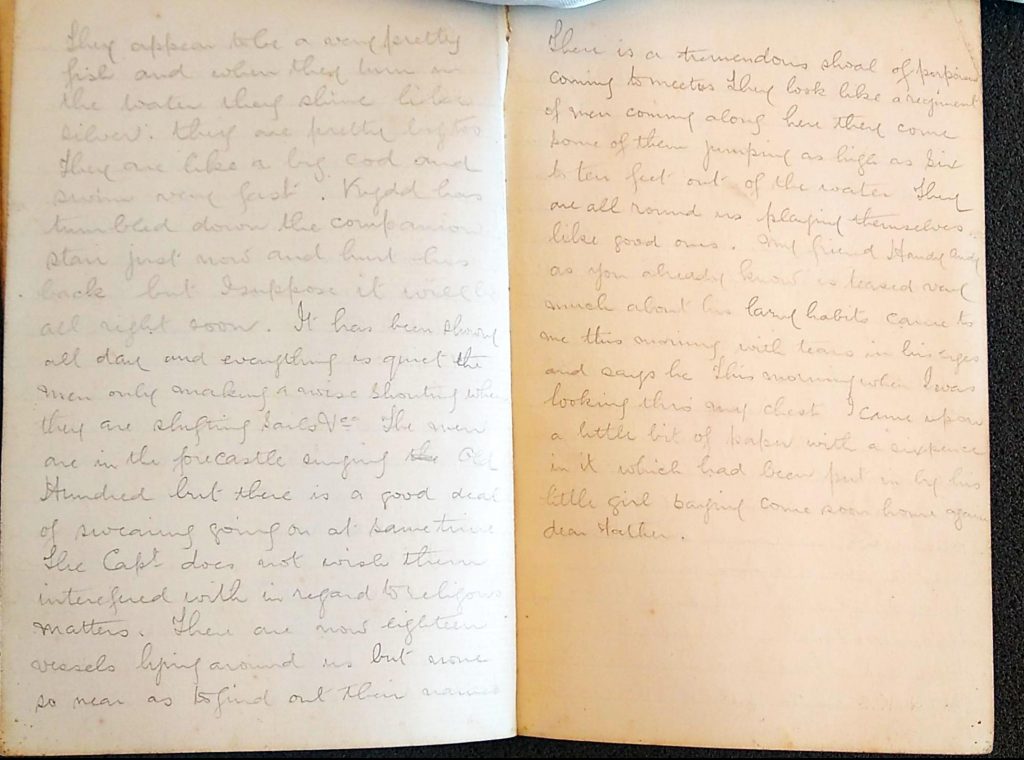 They appear to be a very pretty
fish and when they turn in
the water they shine like
silver. They are pretty big too
They are like a big cod and
swim very fast. has
tumbled down the companion
stair just now and hurt his
back but I suppose it will be
all right soon. It has been
all day and everything is quiet the
men only making a noise shouting when
they are shifting sails &cc The men
are in the forecastle singing the Old
Hundred but there is a good deal
of swearing going on at same time
The Capt does not wish them
interefered with in regard to religous
matters. There are now eighteen
vessels lying around us but none
so near as to find out their names
There is a tremendous shoal of porpoises
coming to meet us They look like a regiment
of men coming along here they come
some of them jumping as high as six
to ten feet out of the water They
are all round us playing themselves
like good ones. My friend Handy Andy
as you already know is teased very
much about his lazy habits came to
me this morning with tears in his eyes
and says he This morning when I was
looking thro my chest I came upon
a little bit of paper with a sixpence
in it which had been put in by his
little girl saying come soon home again
dear Father.